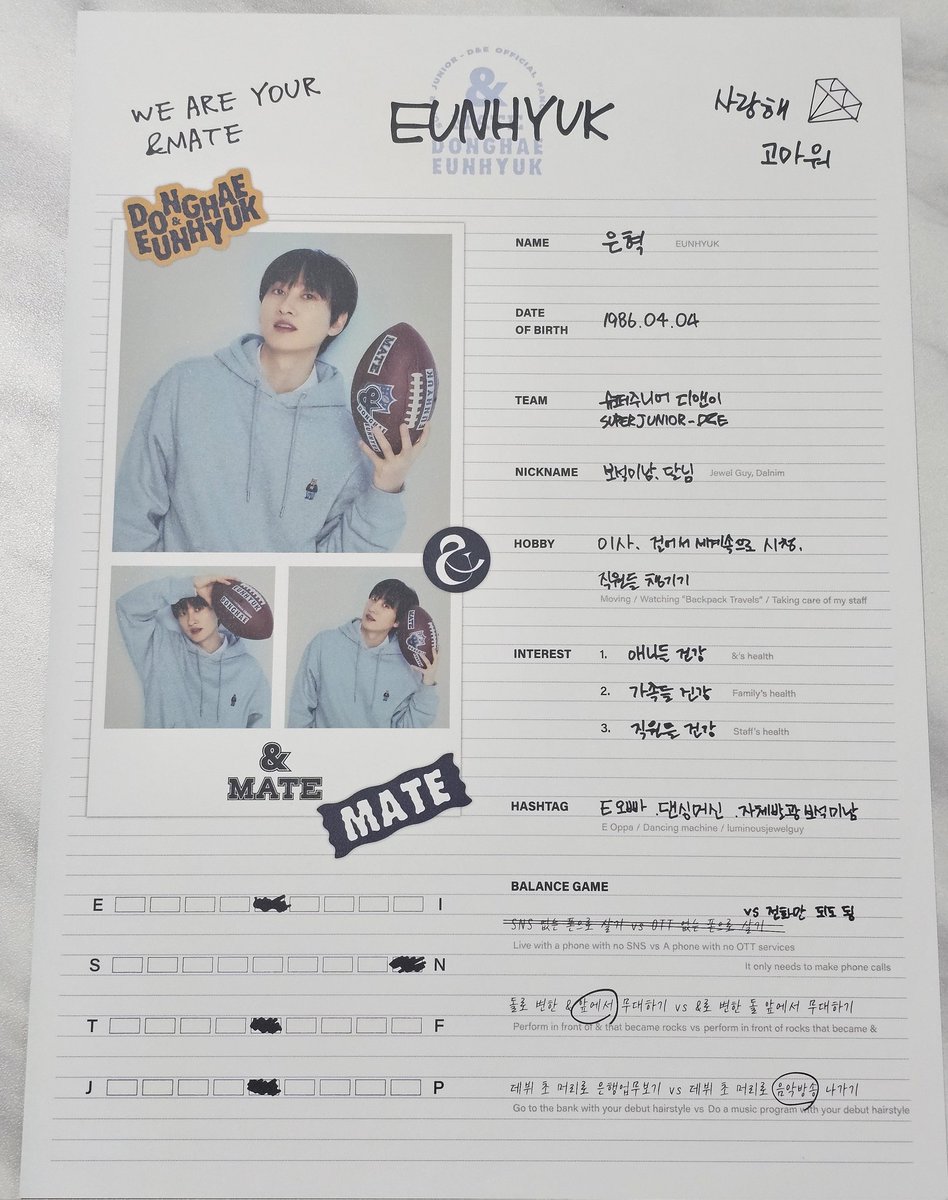 WE ARE YOUR
&MATE
EUNHYUK
사랑해
고마워
JUNIOR-D&E OFFICIAL
&
DONGHAE
EUNHYUK
DONGHAE
&
EUNHYUK
MATE
&
EUNHYUK
EUNHYUK
DONGHAE
MATE
&
&
MATE
MATE
NAME 은혁 EUNHYUK
DATE
OF BIRTH 1986.04.04
TEAM 슈퍼주니어 디앤이
SUPERJUNIOR-D&E
NICKNAME 보석미남, 달님 Jewel Guy, Dalnim
HOBBY 이사. 걸어서 세계속으로 시청.
직원들 챙기기
Moving / Watching "Backpack Travels" / Taking care of my staff
INTEREST 1. 애나들 건강 &'s health
2. 가족들 건강 Family's health
3. 직원들 건강 Staff's health
HASHTAG E오빠 .댄싱머신 .자체발광보석미남
E Oppa / Dancing machine / luminousjewelguy
E I
S N
T F
J P
BALANCE GAME
vs 전화만 되도 됨
SNS 없는 폰으로 살기 vs OTT 없는 폰으로 살기
Live with a phone with no SNS vs A phone with no OTT services
It only needs to make phone calls
돌로 변한 & 앞에서 무대하기 vs &로 변한 돌 앞에서 무대하기
Perform in front of & that became rocks vs perform in front of rocks that became &
데뷔 초 머리로 은행업무보기 vs 데뷔 초 머리로 음악방송 나가기
Go to the bank with your debut hairstyle vs Do a music program with your debut hairstyle